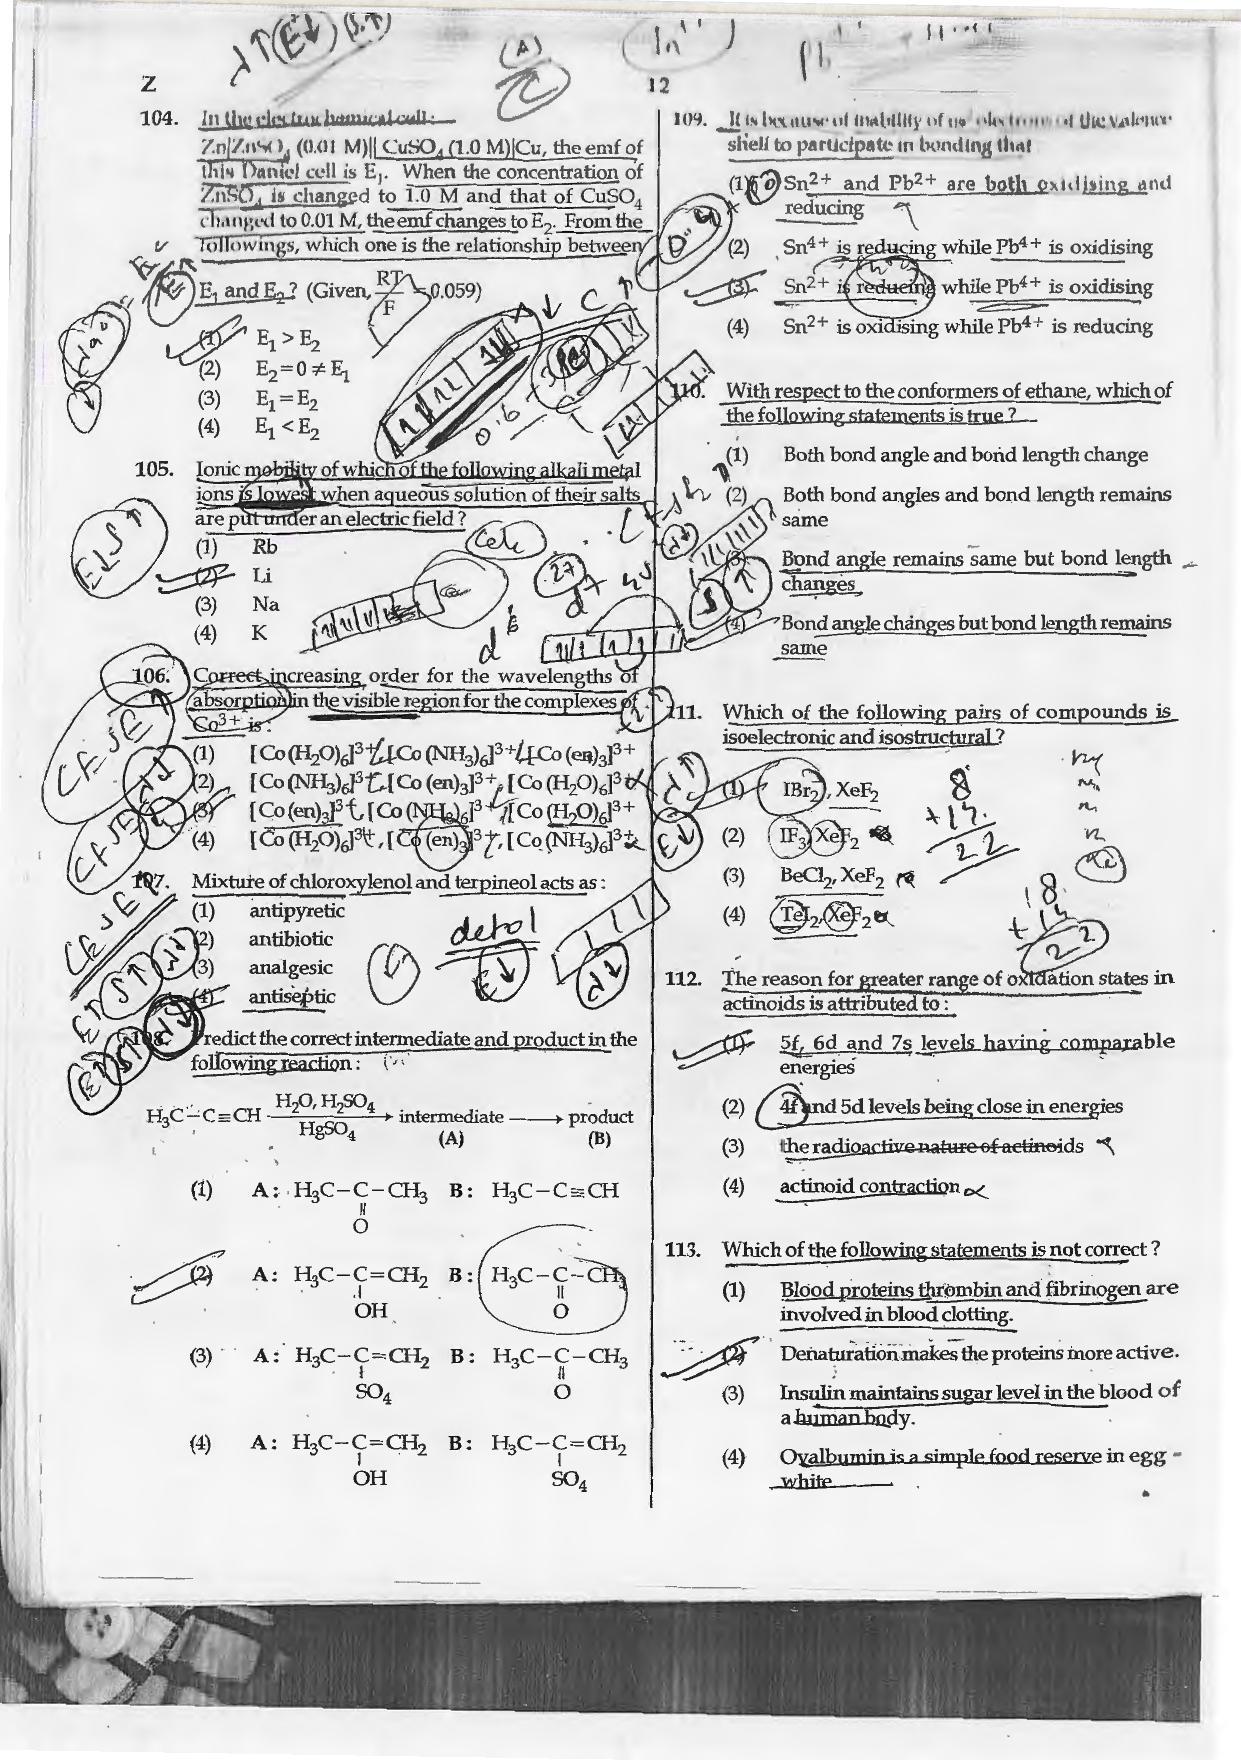 Z
12
104. In the electrochemical cell:
Zn|ZnSO4 (0.01 M)|| CuSO4 (1.0 M)|Cu, the emf of
this Daniel cell is E1. When the concentration of
ZnSO4 is changed to 1.0 M and that of CuSO4
changed to 0.01 M, the emf changes to E2. From the
followings, which one is the relationship between
E1 and E2? (Given, RT/F = 0.059)
(1) E1 > E2
(2) E2 = 0 ≠ E1
(3) E1 = E2
(4) E1 < E2
105. Ionic mobility of which of the following alkali metal
ions is lowest when aqueous solution of their salts
are put under an electric field ?
(1) Rb
(2) Li
(3) Na
(4) K
106. Correct increasing order for the wavelengths of
absorption in the visible region for the complexes of
Co3+ is :
(1) [Co(H2O)6]3+, [Co(NH3)6]3+, [Co(en)3]3+
(2) [Co(NH3)6]3+, [Co(en)3]3+, [Co(H2O)6]3+
(3) [Co(en)3]3+, [Co(NH3)6]3+, [Co(H2O)6]3+
(4) [Co(H2O)6]3+, [Co(en)3]3+, [Co(NH3)6]3+
107. Mixture of chloroxylenol and terpineol acts as :
(1) antipyretic
(2) antibiotic
(3) analgesic
(4) antiseptic
detol
108. Predict the correct intermediate and product in the
following reaction :
H3C−C≡CH H2O, H2SO4 / HgSO4 → intermediate → product
(A) (B)
(1) A : H3C−C−CH3 B : H3C−C≡CH
O
(2) A : H3C−C=CH2 B : H3C−C−CH3
OH O
(3) A : H3C−C=CH2 B : H3C−C−CH3
SO4 O
(4) A : H3C−C=CH2 B : H3C−C=CH2
OH SO4
109. It is because of inability of ns2 electrons of the valence
shell to participate in bonding that
(1) Sn2+ and Pb2+ are both oxidising and
reducing
(2) Sn4+ is reducing while Pb4+ is oxidising
(3) Sn2+ is reducing while Pb4+ is oxidising
(4) Sn2+ is oxidising while Pb4+ is reducing
110. With respect to the conformers of ethane, which of
the following statements is true ?
(1) Both bond angle and bond length change
(2) Both bond angles and bond length remains
same
(3) Bond angle remains same but bond length
changes
(4) Bond angle changes but bond length remains
same
111. Which of the following pairs of compounds is
isoelectronic and isostructural ?
(1) IBr2, XeF2
(2) IF3, XeF2
(3) BeCl2, XeF2
(4) TeI2, XeF2
8
+14
22
18
+14
22
112. The reason for greater range of oxidation states in
actinoids is attributed to :
(1) 5f, 6d and 7s levels having comparable
energies
(2) 4f and 5d levels being close in energies
(3) the radioactive nature of actinoids
(4) actinoid contraction
113. Which of the following statements is not correct ?
(1) Blood proteins thrombin and fibrinogen are
involved in blood clotting.
(2) Denaturation makes the proteins more active.
(3) Insulin maintains sugar level in the blood of
a human body.
(4) Ovalbumin is a simple food reserve in egg -
white